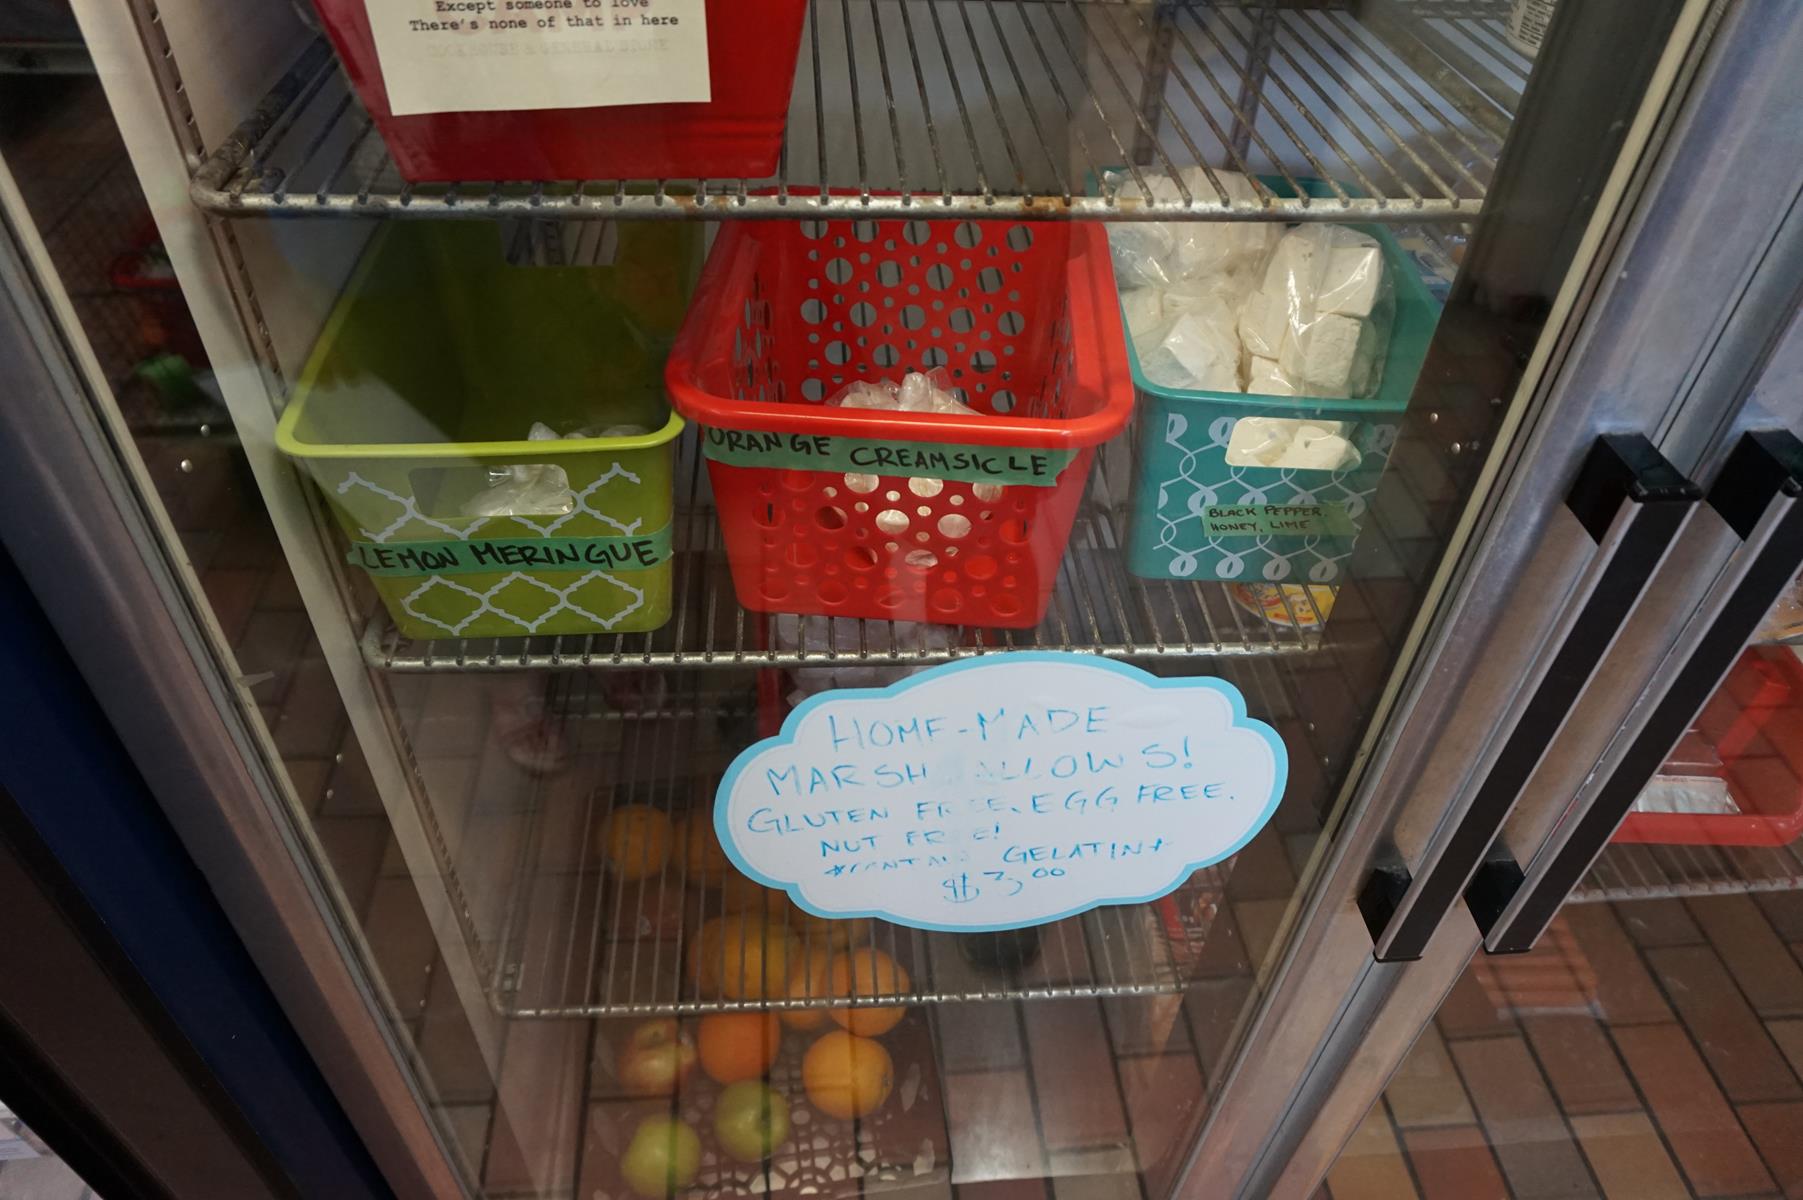 Except someone to love
There's none of that in here
COOKHOUSE & GENERAL STORE
ORANGE CREAMSICLE
LEMON MERINGUE
BLACK PEPPER,
HONEY, LIME
HOME-MADE
MARSH ALLOWS!
GLUTEN FREE. EGG FREE.
NUT FREE!
*CONTAINS GELATIN*
$3.00